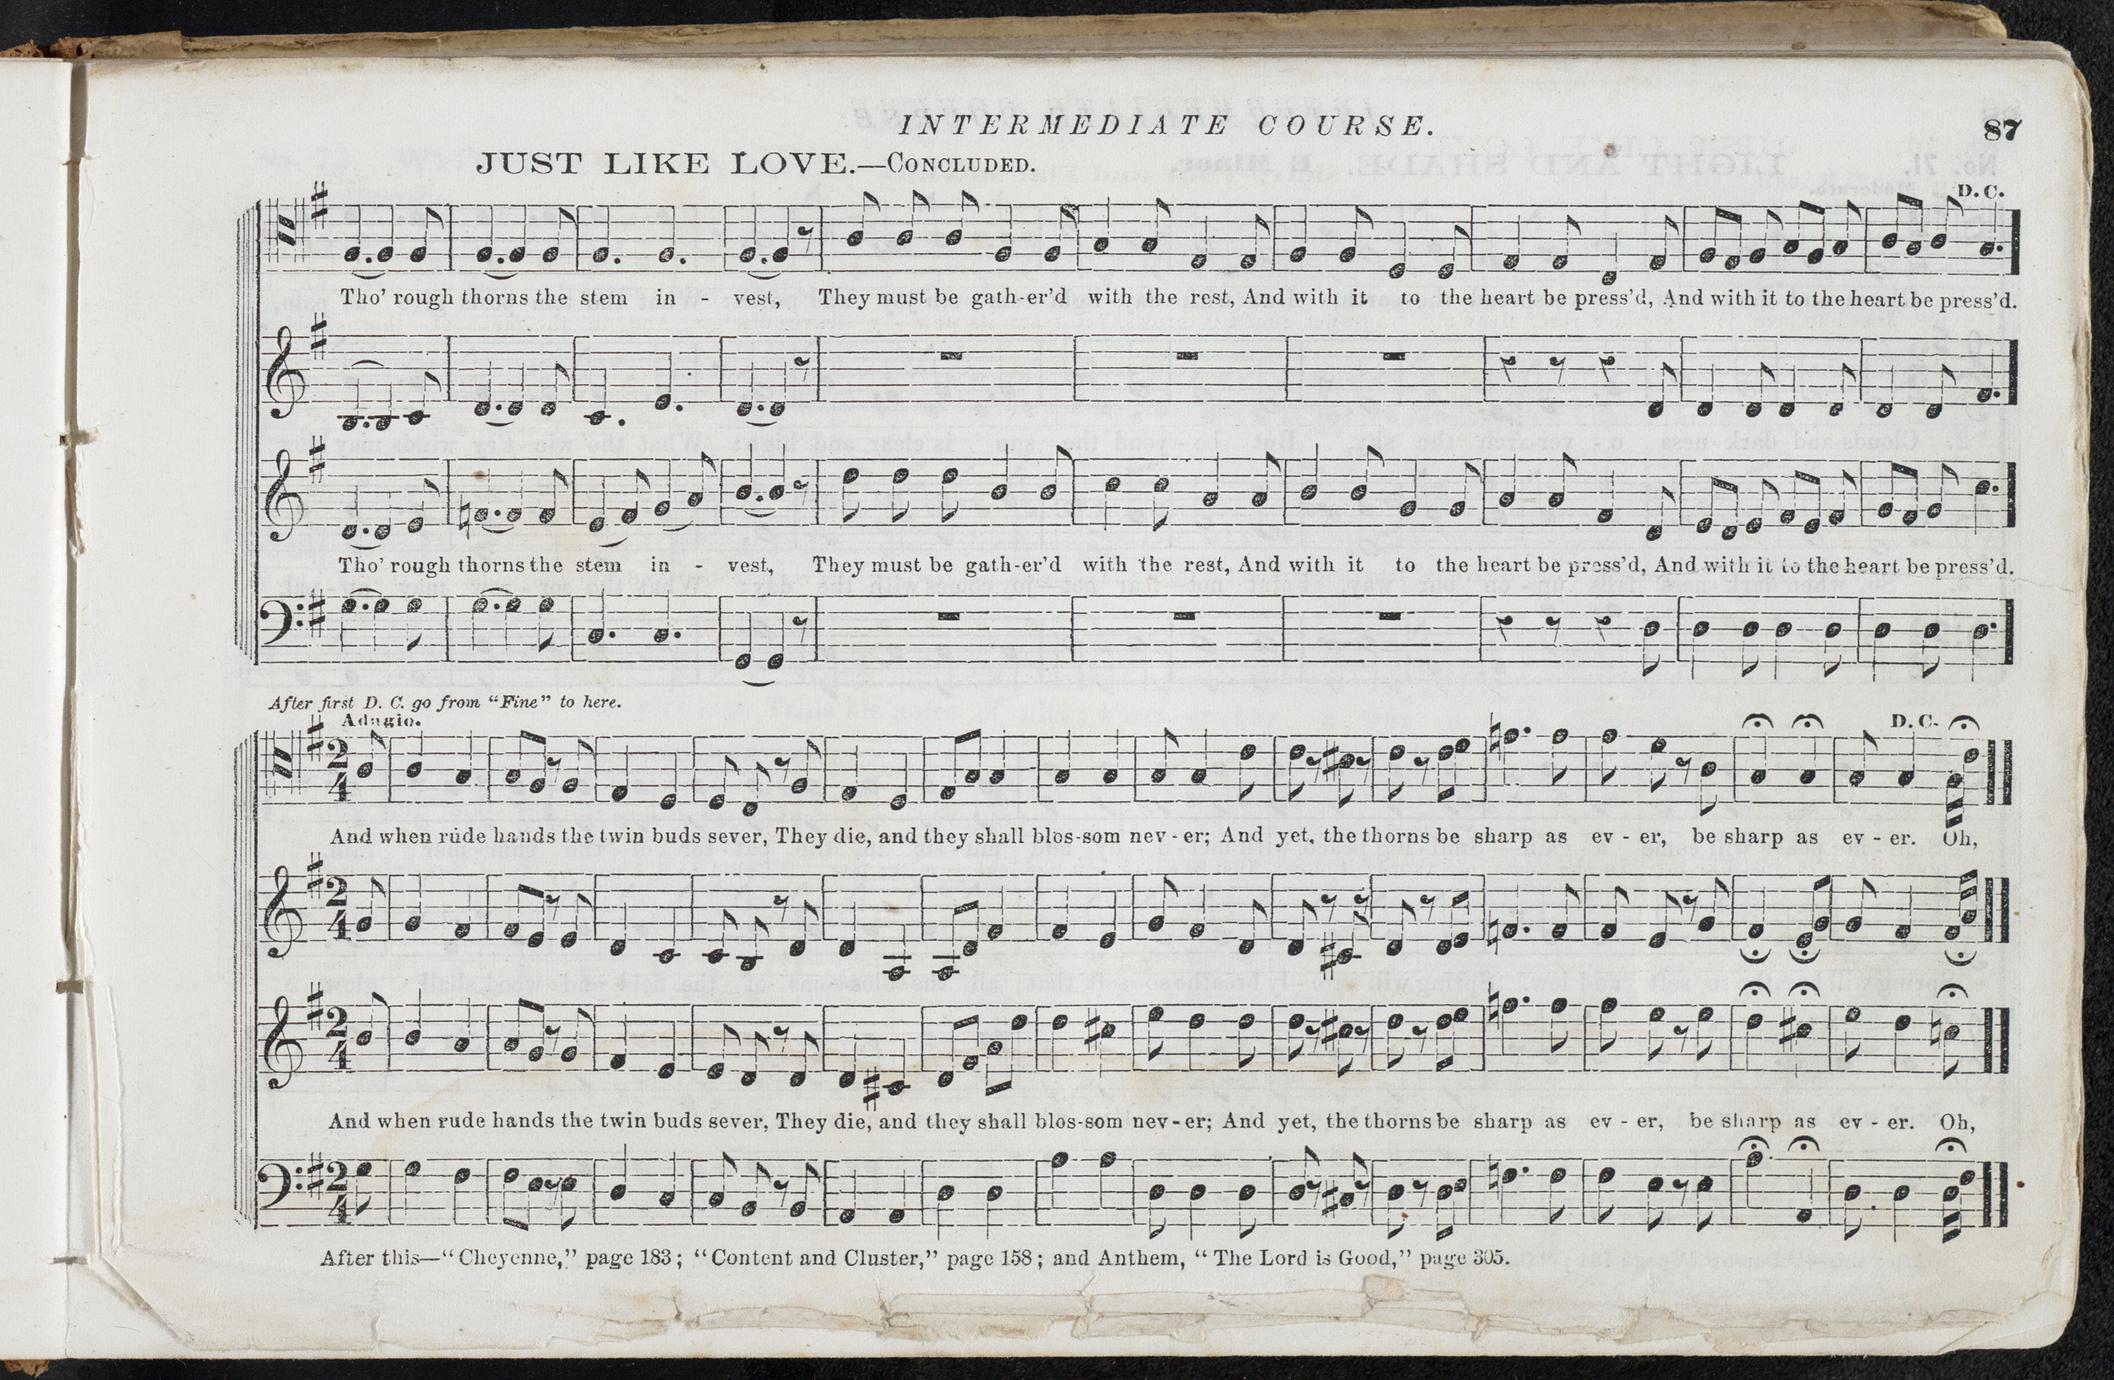 INTERMEDIATE COURSE. 87
JUST LIKE LOVE.—CONCLUDED.
D. C.
Tho' rough thorns the stem in - vest, They must be gath-er'd with the rest, And with it to the heart be press'd, And with it to the heart be press'd.
Tho' rough thorns the stem in - vest, They must be gath-er'd with the rest, And with it to the heart be press'd, And with it to the heart be press'd.
After first D. C. go from "Fine" to here.
Adagio. D. C.
2
4
And when rude hands the twin buds sever, They die, and they shall blos-som nev - er; And yet, the thorns be sharp as ev - er, be sharp as ev - er. Oh,
2
4
2
4
And when rude hands the twin buds sever, They die, and they shall blos-som nev - er; And yet, the thorns be sharp as ev - er, be sharp as ev - er. Oh,
2
4
After this—"Cheyenne," page 183; "Content and Cluster," page 158; and Anthem, "The Lord is Good," page 305.